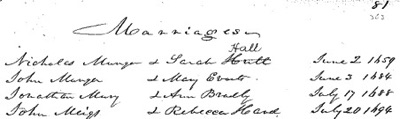 81
363
Marriages
Hall
Nicholas Munger & Sarah Hull June 2 1659
John Munger & Mary Evarts June 3 1684
Jonathan Murry & Ann Bradly July 17 1688
John Meigs & Rebecca Hand July 20 1694